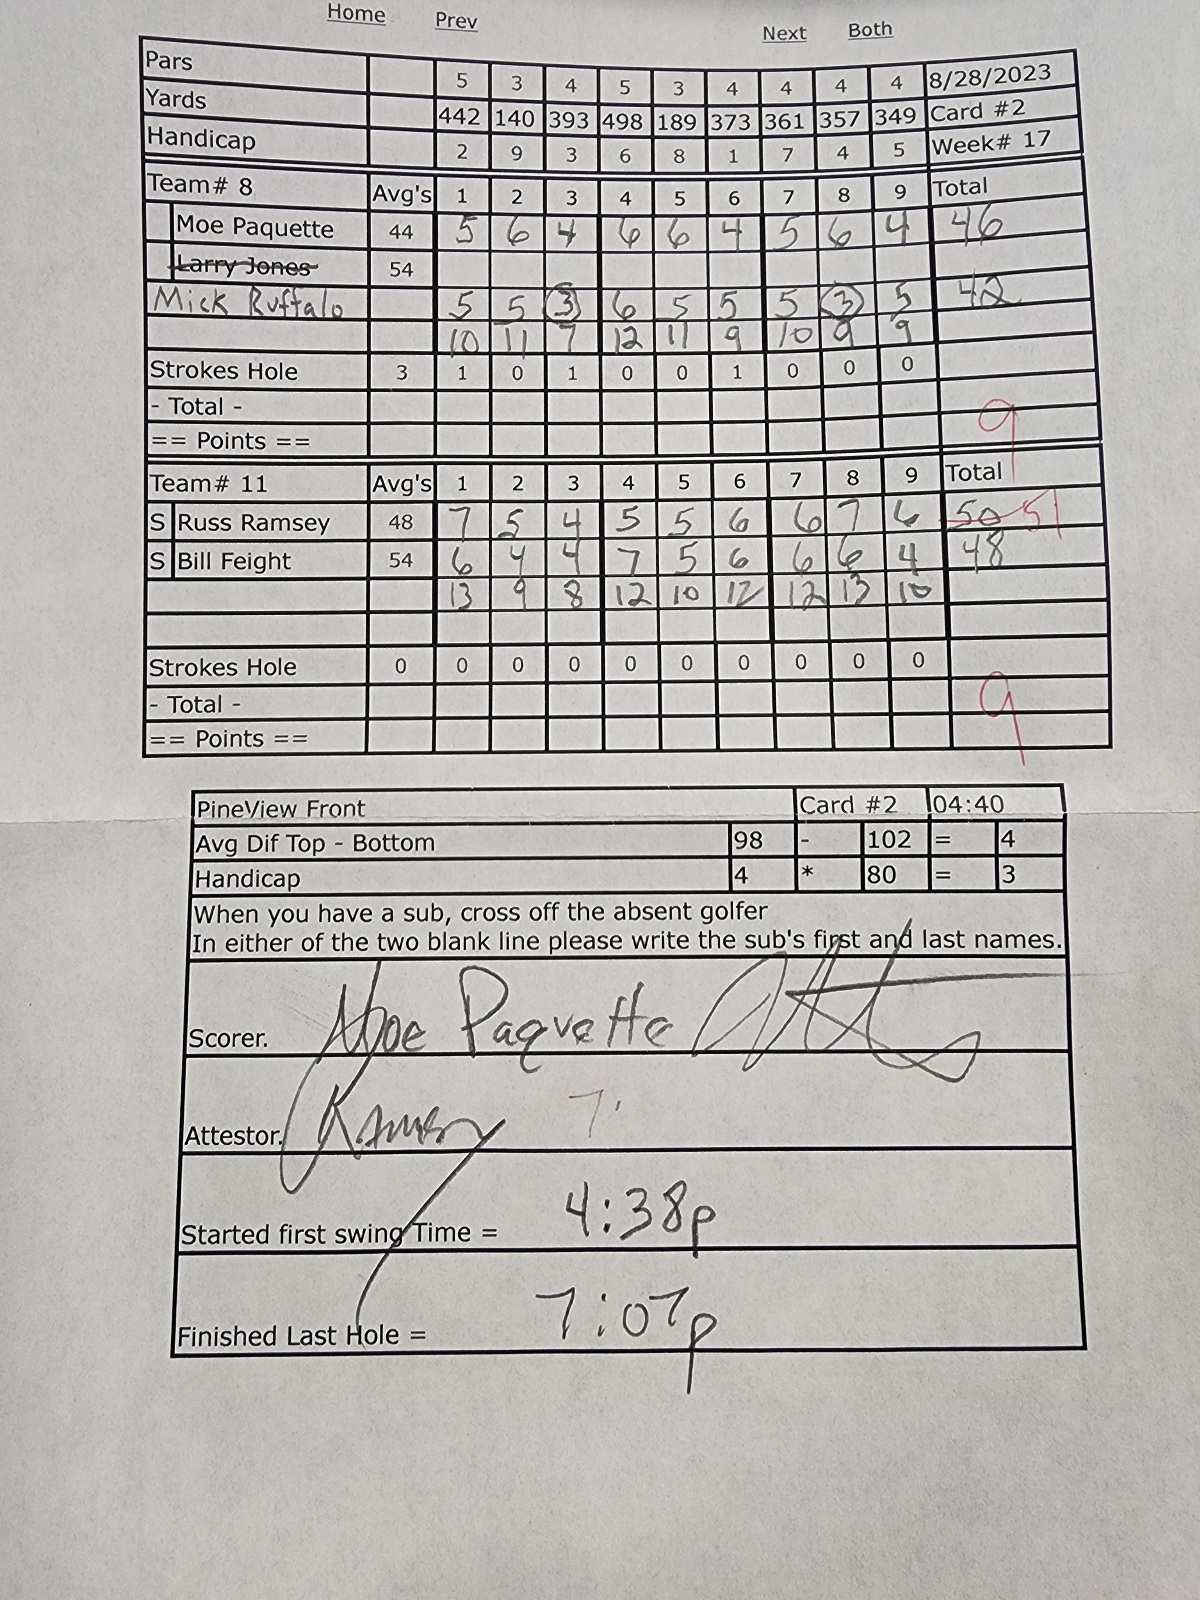 Home Prev Next Both
Pars 5 3 4 5 3 4 4 4 4 8/28/2023
Yards 442 140 393 498 189 373 361 357 349 Card #2
Handicap 2 9 3 6 8 1 7 4 5 Week# 17
Team# 8 Avg's 1 2 3 4 5 6 7 8 9 Total
Moe Paquette 44 5 6 4 6 6 4 5 6 4 46
Larry Jones 54
Mick Ruffalo 5 5 3 6 5 5 5 3 5 42
10 11 7 12 11 9 10 9 9
Strokes Hole 3 1 0 1 0 0 1 0 0 0
- Total -
== Points == 9
Team# 11 Avg's 1 2 3 4 5 6 7 8 9 Total
S Russ Ramsey 48 7 5 4 5 5 6 6 7 6 50 51
S Bill Feight 54 6 4 4 7 5 6 6 6 4 48
13 9 8 12 10 12 12 13 10
Strokes Hole 0 0 0 0 0 0 0 0 0 0
- Total - 9
== Points ==
PineView Front Card #2 04:40
Avg Dif Top - Bottom 98 - 102 = 4
Handicap 4 * 80 = 3
When you have a sub, cross off the absent golfer
In either of the two blank line please write the sub's first and last names.
Scorer. Moe Paquette
Attestor. Ramsey 7
Started first swing Time = 4:38p
Finished Last Hole = 7:07p